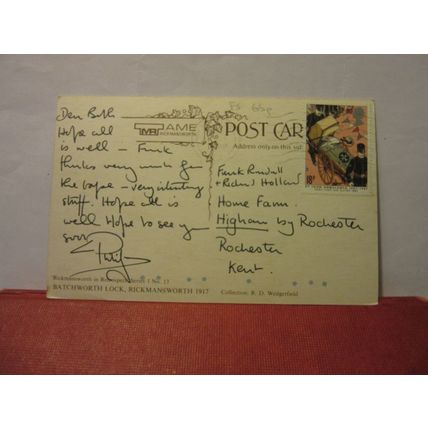 Fs 65p
Dear Both
Hope all
is well – Frank
thanks very much for
the tape – very interesting
stuff. Hope all is
well Hope to see you
soon
Philip
TAME
RICKMANSWORTH
POST CAR
Address only on this sid
18p
Frank Randall
+ Richard Holland
Home Farm
Higham by Rochester
Rochester
Kent.
Rickmansworth in Retrospect Series 1 No. 13
BATCHWORTH LOCK, RICKMANSWORTH 1917
Collection: R. D. Wedgerfield